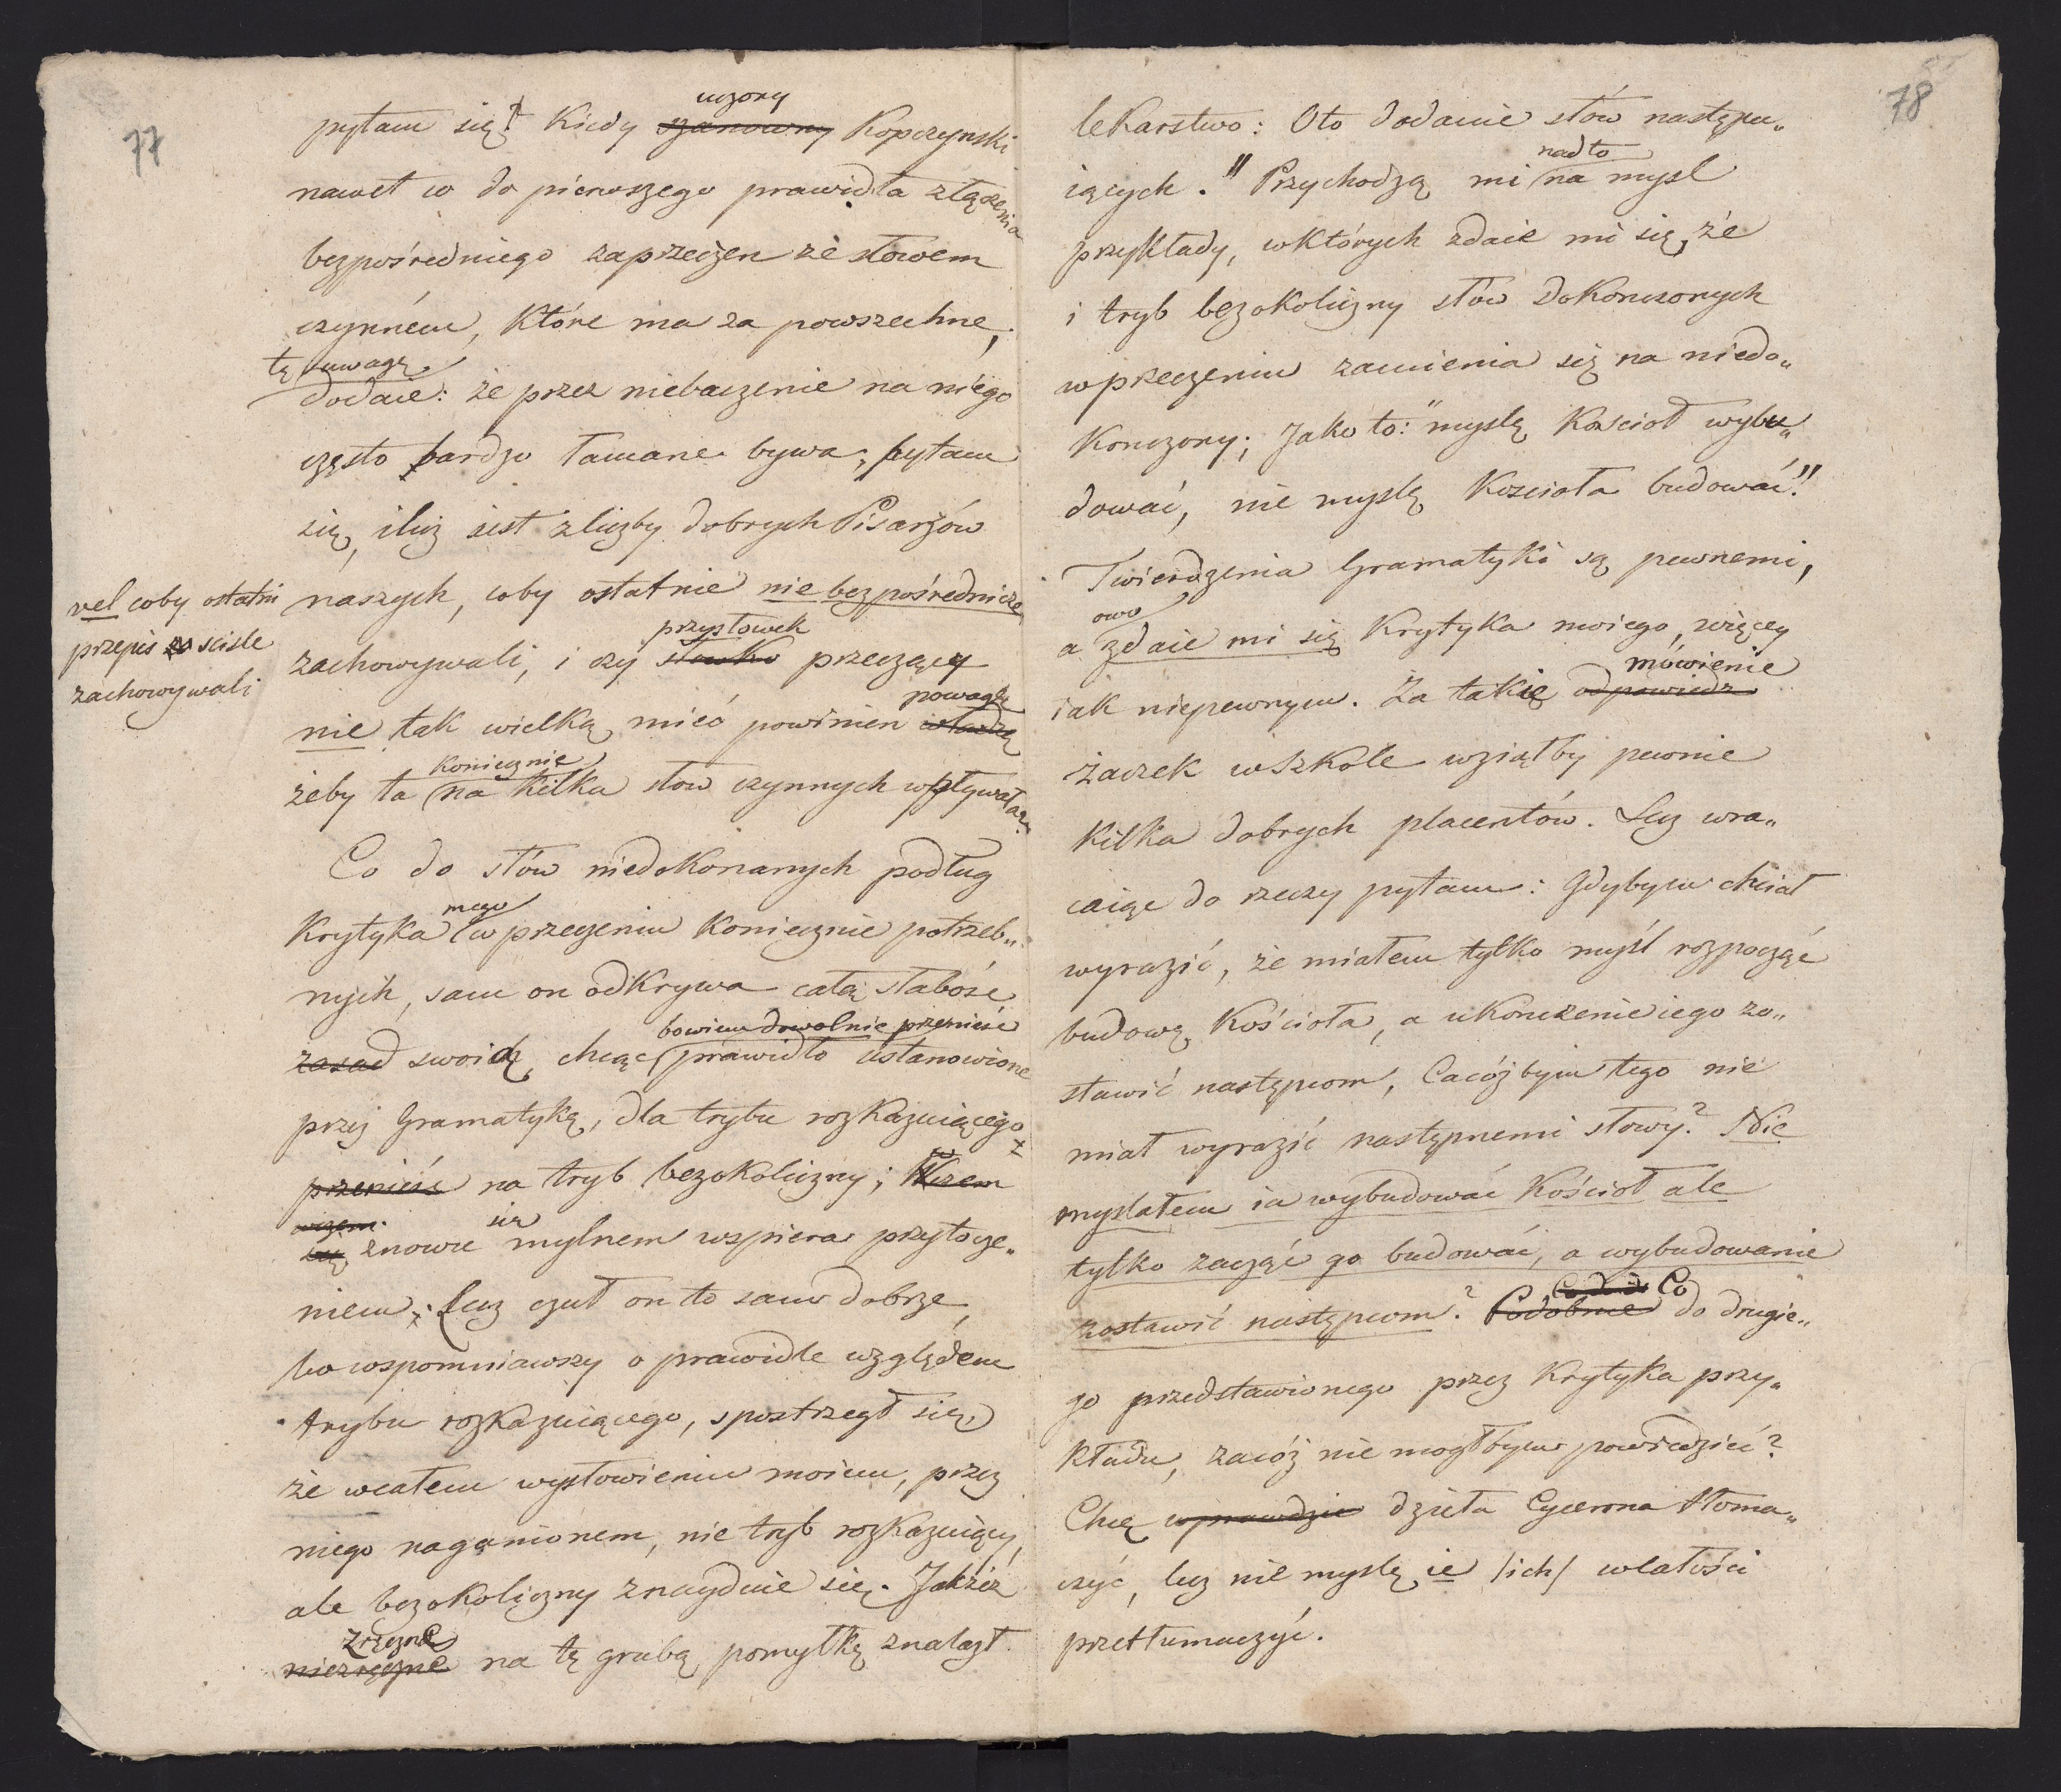 77
uczony
pytam się? Kiedy szanowny Kopczynski
nawet co do pierwszego prawidła złączenia
bezpośredniego zaprzeczen ze słowem
czynném, które ma za powszechne,
tę uwagę
dodaie: że przez niebaczenie na niego
często bardzo łamane bywa; pytam
się, iluż iest z liczby dobrych Pisarzów
naszych, coby ostatnie nie bezpośrednicze
vel coby ostatni
przepis scisle
zachowywali
przysłowek
zachowywali, i czy słowko przeczący
powagę
nie tak wielką mieć powinien władzę
koniecznie
żeby ta na kilka słow czynnych wpływała?
Co do słów niedokonanych podług
mego
Krytyka w przeczeniu koniecznie potrzeb„
nych, sam on odkrywa całą słabość
bowiem dowolnie przenieść
zasad swoich, chcąc prawidło ustanowione
przez Gramatykę, dla trybu rozkazuiącego
przenieść na tryb bezokoliczny;
się
znowu mylnem wspiera przytocze„
niem; Lecz czuł on to sam dobrze,
bo wspomniawszy o prawidle względem
trybu rozkazuiącego, spostrzegł się,
że w całem wysłowieniu moiem, przez
niego naganionem, nie tryb rozkazuiący,
ale bezokoliczny znayduie się. Jakżeż
zręczne
niezręczne na tę grubą pomyłkę znalazł
78
lekarstwo: Oto dodanie słów następu„
nadto
iących. "Przychodzą mi na mysl
przykłady, w których zdaie mi się, że
i tryb bezokoliczny słów dokonczonych
w przeczeniu zamienia się na niedo„
konczony; Jako to: "myslę Koscioł wybu„
dować, nie myslę Koscioła budować."
Twierdzenia Gramatyki są pewnemi,
owo
a zdaie mi się Krytyka moiego, więcey
mówienie
iak niepewnym. Za takie odpowiedz
żaczek w szkole wziąłby pewnie
kilka dobrych placentów. Lecz wra„
caiąc do rzeczy pytam: Gdybym chciał
wyrazić, że miałem tylko myśl rozpocząć
budowę Kościoła, a ukończenie iego zo„
stawić następcom, Cacóżbym tego nie
miał wyrazić następnemi słowy? Nie
myslałem ia wybudować Kościoł ale
tylko zacząć go budować, a wybudowanie
Co
zostawić następcom? Podobnie do drugie„
go przedstawionego przez Krytyka przy„
kładu, zacóż nie mogłbym powiedzieć?
Chcę wprawdzie dzieła Cycerona tłoma„
czyć, lecz nie myslę ie /ich/ w całości
przetłumaczyć.